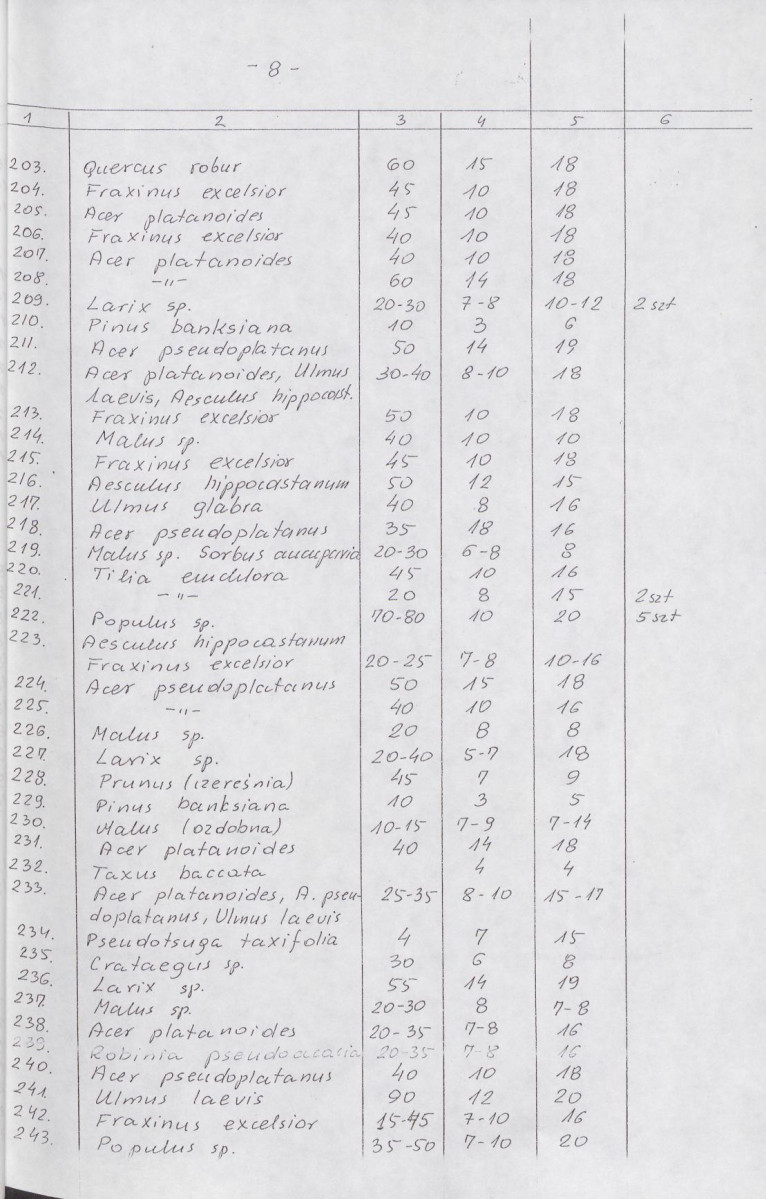 - 8 -
1 2 3 4 5 6
203. Quercus robur 60 15 18
204. Fraxinus excelsior 45 10 18
205. Acer platanoides 45 10 18
206. Fraxinus excelsior 40 10 18
207. Acer platanoides 40 10 18
208. -"- 60 14 18
209. Larix sp. 20-30 7-8 10-12 2 szt
210. Pinus banksiana 10 3 6
211. Acer pseudoplatanus 50 14 19
212. Acer platanoides, Ulmus 30-40 8-10 18
laevis, Aesculus hippocast.
213. Fraxinus excelsior 50 10 18
214. Malus sp. 40 10 10
215. Fraxinus excelsior 45 10 18
216. Aesculus hippocastanum 50 12 15
217. Ulmus glabra 40 8 16
218. Acer pseudoplatanus 35 18 16
219. Malus sp. Sorbus aucuparia 20-30 6-8 8
220. Tilia euchlora 45 10 16
221. -"- 20 8 15 2 szt
222. Populus sp. 70-80 10 20 5 szt
223. Aesculus hippocastanum
Fraxinus excelsior 20-25 7-8 10-16
224. Acer pseudoplatanus 50 15 18
225. -"- 40 10 16
226. Malus sp. 20 8 8
227. Larix sp. 20-40 5-7 18
228. Prunus (czereśnia) 45 7 9
229. Pinus banksiana 10 3 5
230. Malus (ozdobna) 10-15 7-9 7-14
231. Acer platanoides 40 14 18
232. Taxus baccata 4 4
233. Acer platanoides, A. pseu- 25-35 8-10 15-17
doplatanus, Ulmus laevis
234. Pseudotsuga taxifolia 4 7 15
235. Crataegus sp. 30 6 8
236. Larix sp. 55 14 19
237. Malus sp. 20-30 8 7-8
238. Acer platanoides 20-35 7-8 16
239. Robinia pseudoacacia 20-35 7-8 16
240. Acer pseudoplatanus 40 10 18
241. Ulmus laevis 90 12 20
242. Fraxinus excelsior 15-45 7-10 16
243. Populus sp. 35-50 7-10 20